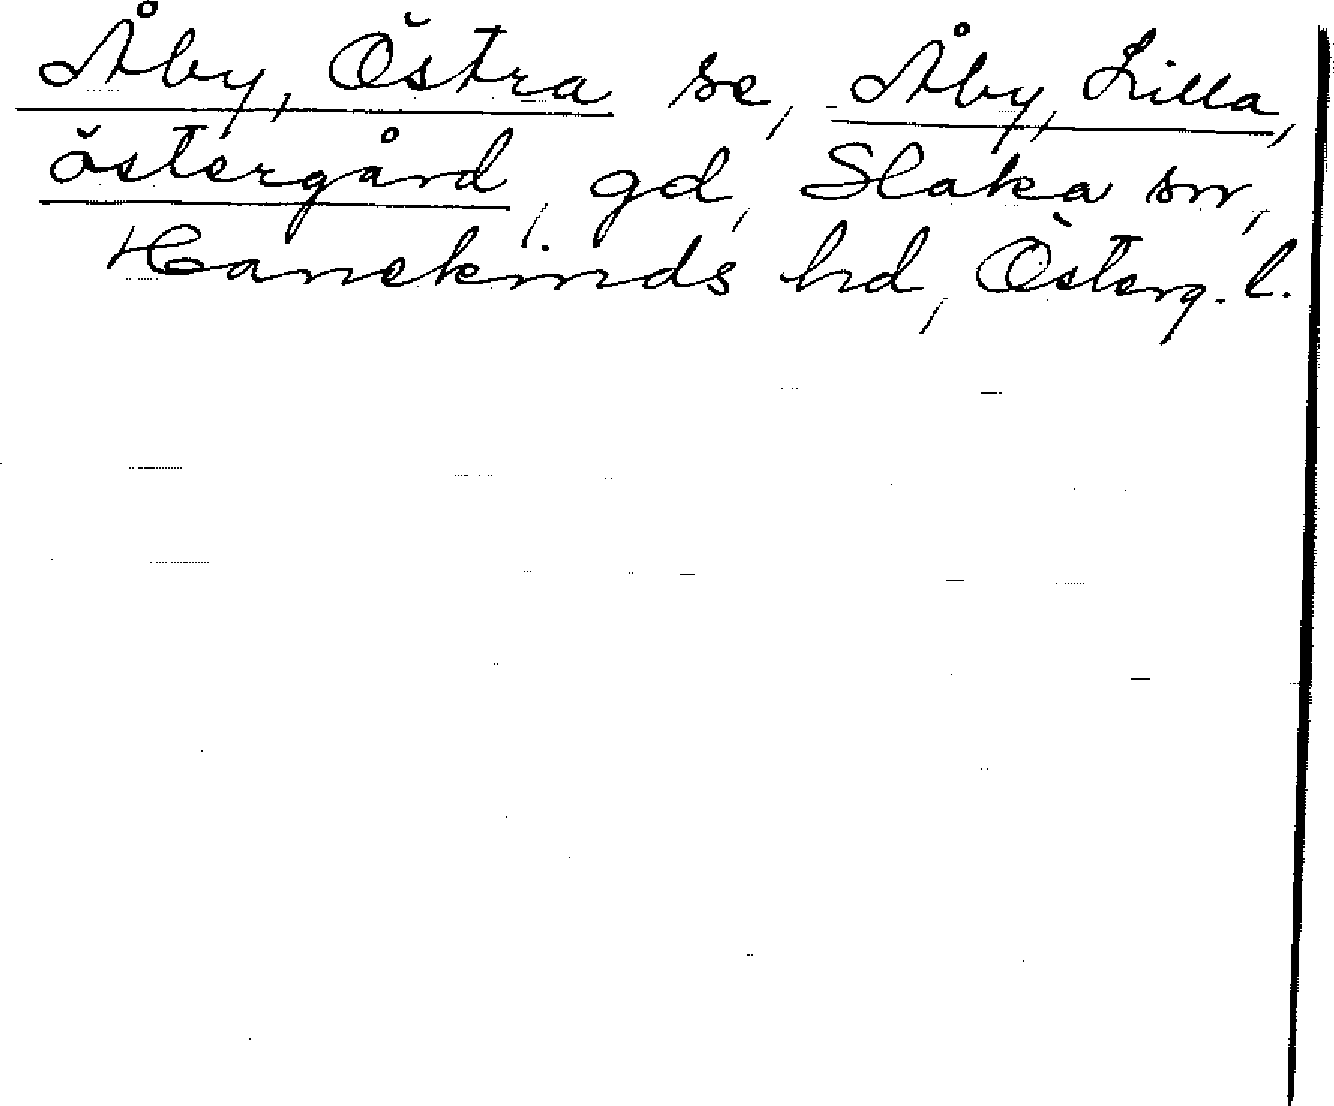 Åby, Östra se, Åby, Lilla,
östergård, gd, Slaka sn,
Hanekinds hd, Österg. l.